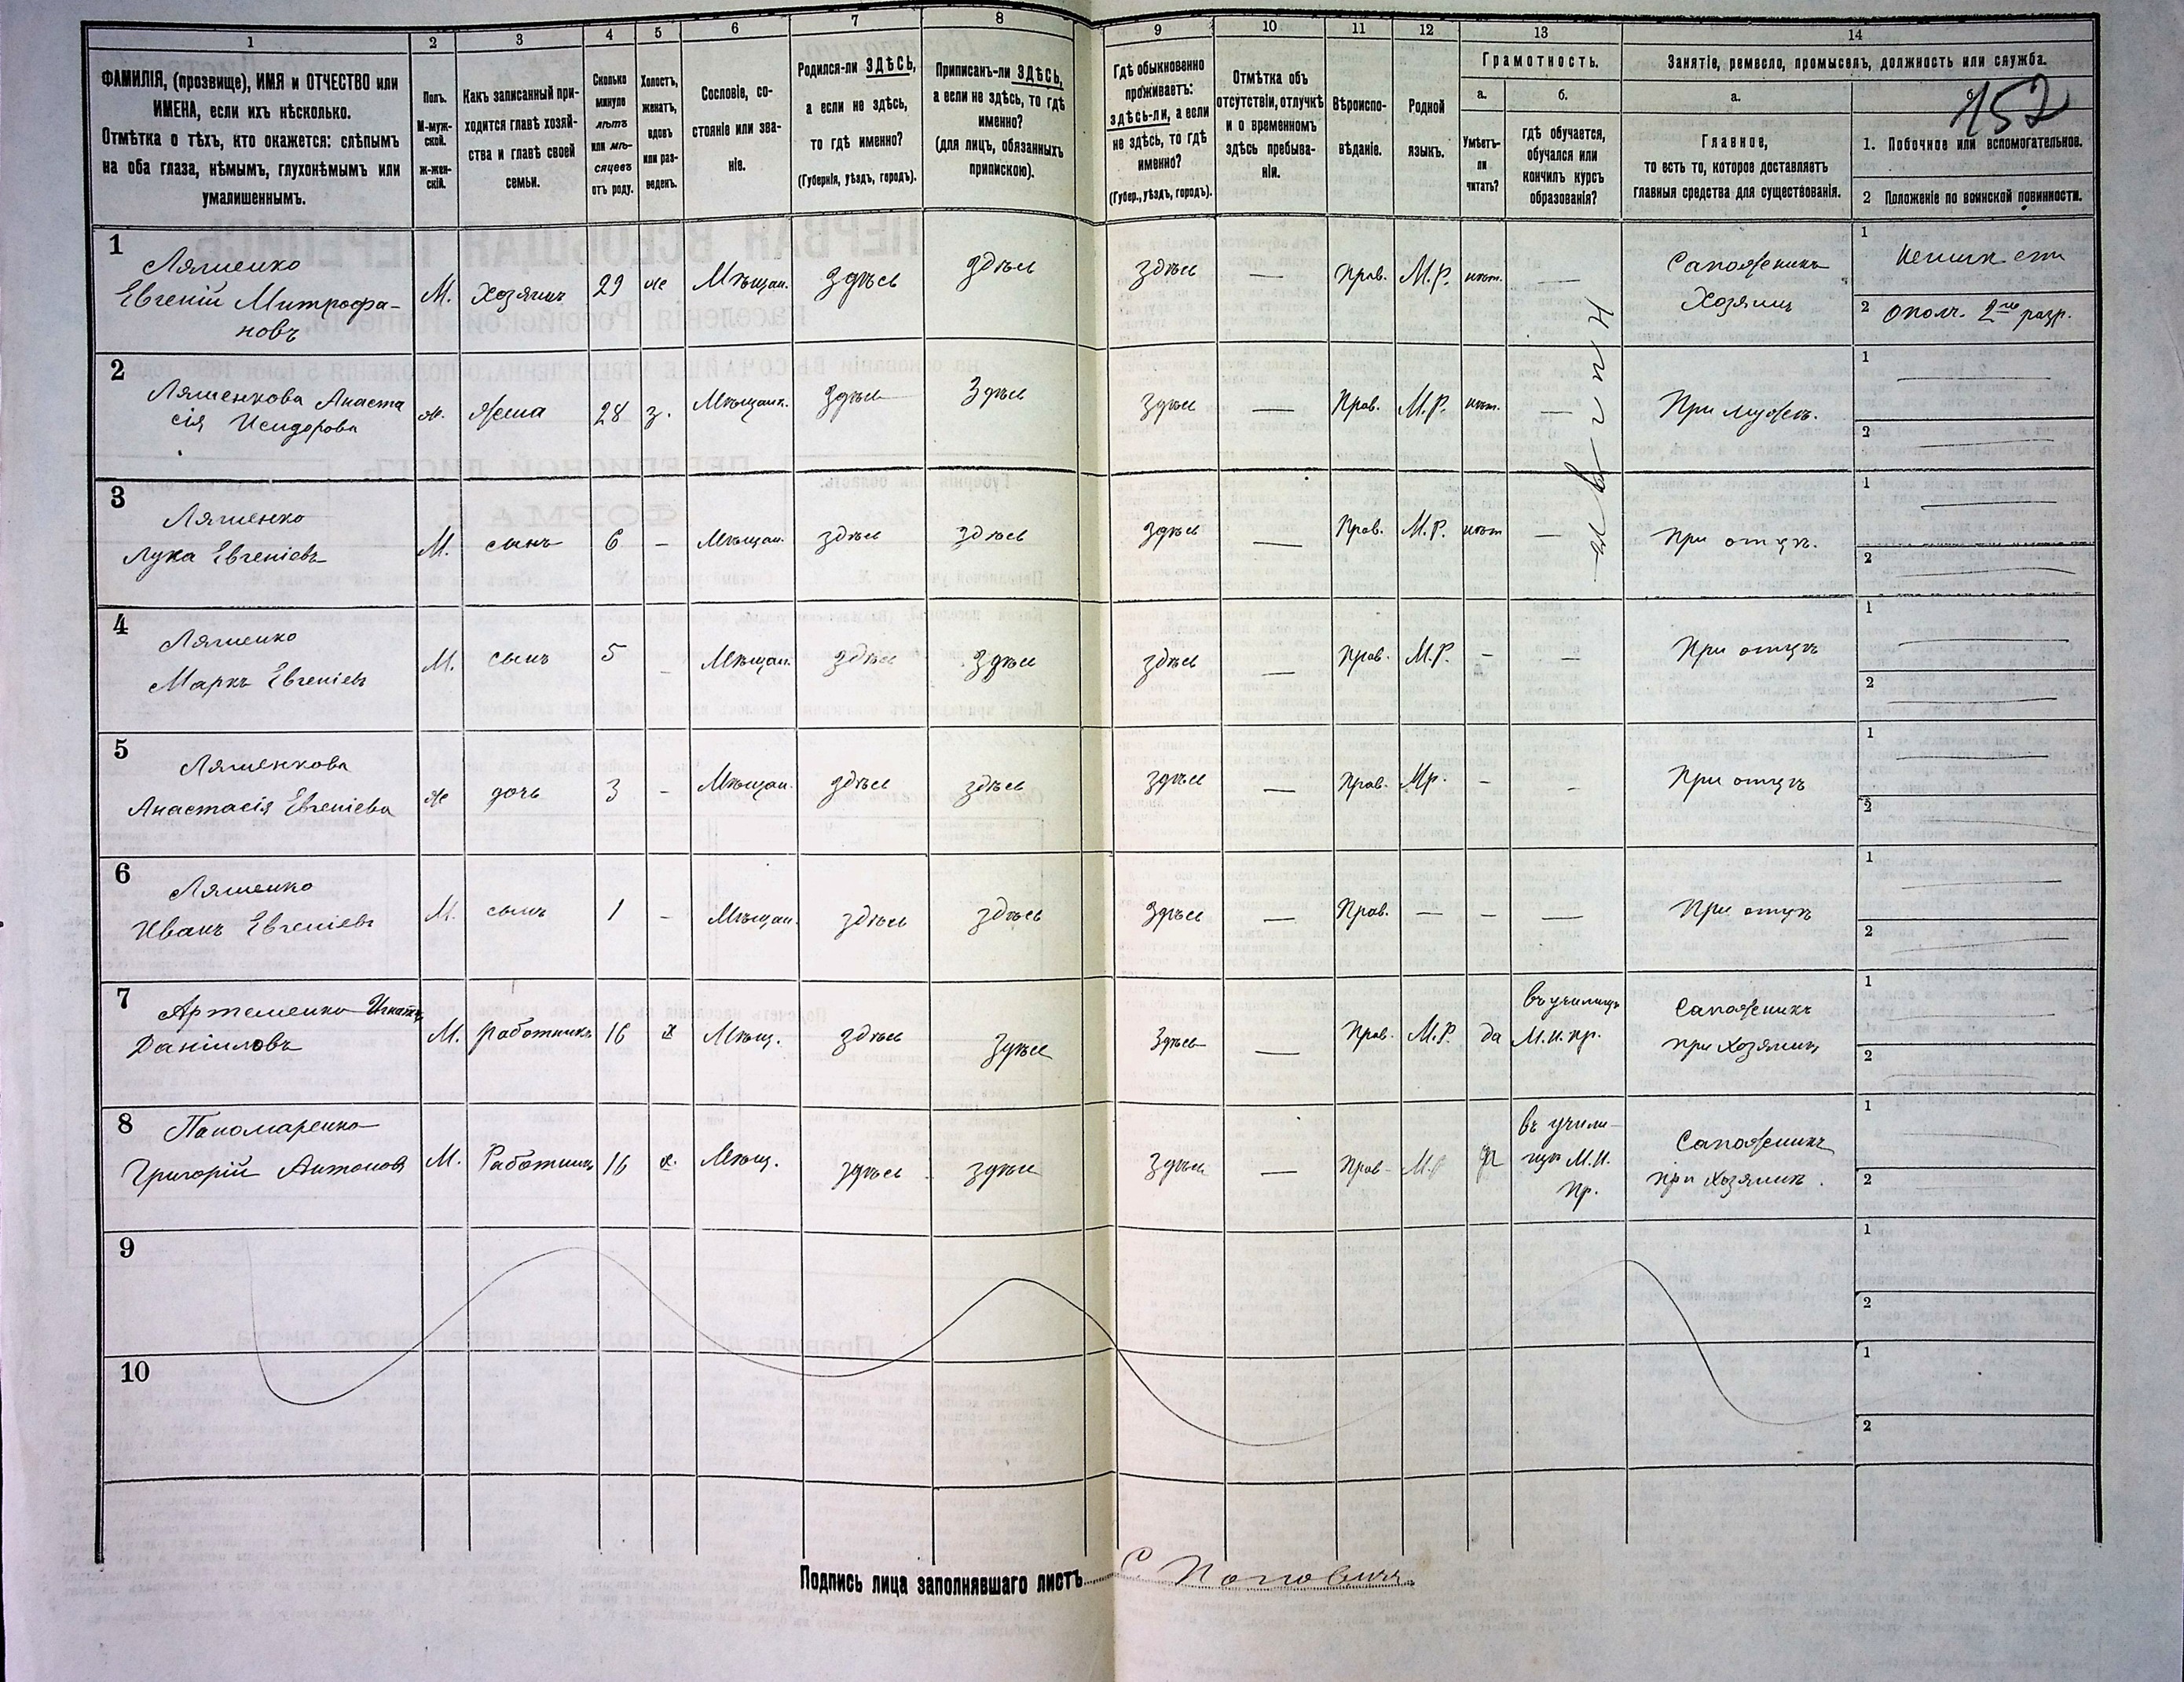 1 2 3 4 5 6 7 8 9 10 11 12 13 14
ФАМИЛІЯ, (прозвище), ИМЯ и ОТЧЕСТВО или
ИМЕНА, если ихъ нѣсколько.
Отмѣтка о тѣхъ, кто окажется: слѣпымъ
на оба глаза, нѣмымъ, глухонѣмымъ или
умалишеннымъ.
Полъ.
М-муж-
ской.
ж-жен-
скій.
Какъ записанный при-
ходится главѣ хозяй-
ства и главѣ своей
семьи.
Сколько
минуло
лѣтъ
или мѣ-
сяцевъ
отъ роду.
Холостъ,
женатъ,
вдовъ
или раз-
веденъ.
Сословіе, со-
стояніе или зва-
ніе.
Родился-ли ЗДѢСЬ,
а если не здѣсь,
то гдѣ именно?
(Губернія, уѣздъ, городъ).
Приписанъ-ли ЗДѢСЬ,
а если не здѣсь, то гдѣ
именно?
(для лицъ, обязанныхъ
припискою).
Гдѣ обыкновенно
проживаетъ:
здѣсь-ли, а если
не здѣсь, то гдѣ
именно?
(Губер., уѣздъ, городъ).
Отмѣтка объ
отсутствіи, отлучкѣ
и о временномъ
здѣсь пребыва-
ніи.
Вѣроиспо-
вѣданіе.
Родной
языкъ.
Грамотность.
а.
Умѣетъ-
ли
читать?
б.
гдѣ обучается,
обучался или
кончилъ курсъ
образованія?
Занятіе, ремесло, промыселъ, должность или служба.
а.
Главное,
то есть то, которое доставляетъ
главныя средства для существованія.
б.
152
1. Побочное или вспомогательное.
2 Положеніе по воинской повинности.
1
Ляшенко
Евгеній Митрофа-
новъ
М. Хозяинъ 29 же Мѣщан. Здѣсь здѣсь здѣсь — Прав. М.Р. нѣт. —
Сапожникъ
Хозяинъ
1
2 ополч. 2го разр.
2
Ляшенкова Анаста
сія Исидорова
ж. Жена 28 з. Мѣщанк. Здѣсь Здѣсь здѣсь — Прав. М.Р. нѣт. — При мужѣ.
1
2
3
Ляшенко
Лука Евгеніевъ
М. сынъ 6 – Мѣщан. здѣсь здѣсь здѣсь — Прав. М.Р. нѣт — При отцѣ.
1
2
4
Ляшенко
Маркъ Евгеніевъ
М. сынъ 5 – Мѣщан. здѣсь Здѣсь здѣсь — Прав. М.Р. – — При отцѣ
1
2
5
Ляшенкова
Анастасія Евгеніева
ж дочь 3 – Мѣщан. здѣсь здѣсь здѣсь — Прав. Мр. – – При отцѣ
1
2
6
Ляшенко
Иванъ Евгеніевъ
М. сынъ 1 – Мѣщан. здѣсь здѣсь здѣсь — Прав. — – — При отцѣ
1
2
7
Артеменко Игнатъ
Даніиловъ
М. Работникъ 16 х Мѣщ. здѣсь здѣсь Здѣсь — Прав. М.Р. да
въ училищѣ
М.н.пр.
Сапожникъ
при хозяинѣ
1
2
8
Пономаренко
Григорій Антоновъ
М. Работникъ 16 х. Мѣщ. здѣсь здѣсь здѣсь — Прав– М.Р да
въ учили-
щѣ М.Н.
Пр.
Сапожникъ
при хозяинѣ.
1
2
9
1
2
10
1
2
Подпись лица заполнявшаго листъ С. Поповичъ